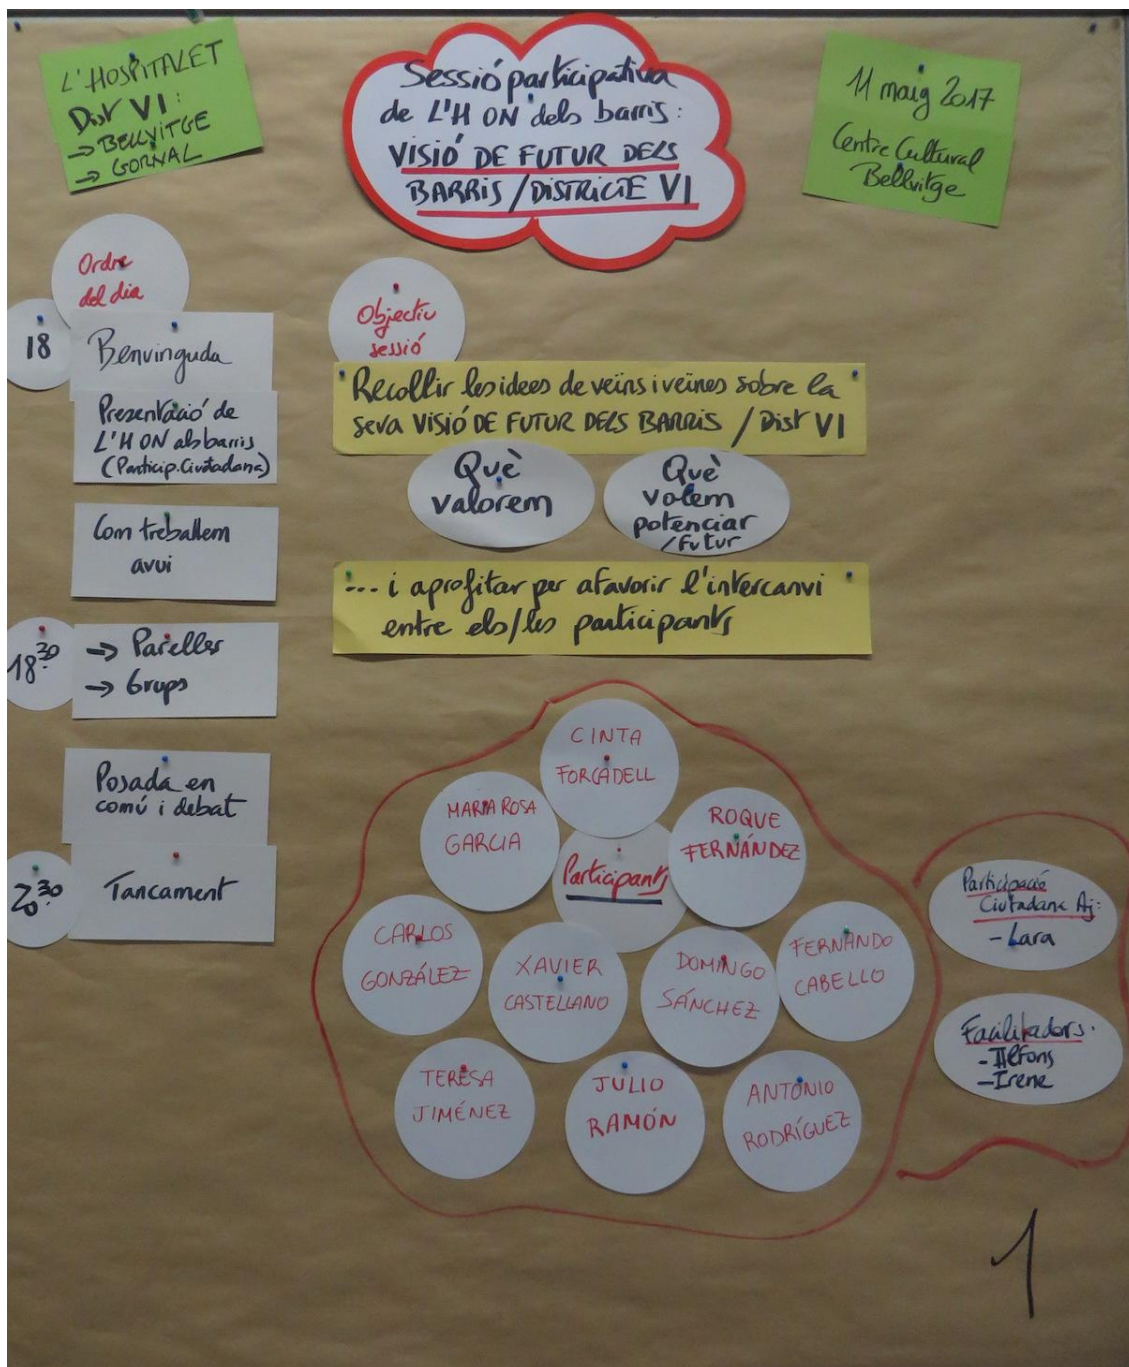 L'HOSPITALET
Dist VI:
→ BELLVITGE
→ GORNAL
Sessió participativa
de L'H ON dels barris:
VISIÓ DE FUTUR DELS
BARRIS / DISTRICTE VI
11 maig 2017
Centre Cultural
Bellvitge
Ordre
del dia
18
Benvinguda
Presentació de
L'H ON als barris
(Particip. Ciutadana)
Com treballem
avui
18:30
→ Parelles
→ Grups
Posada en
comú i debat
20:30
Tancament
Objectiu
sessió
Recollir les idees de veïns i veïnes sobre la
seva VISIÓ DE FUTUR DELS BARRIS / Dist VI
Què
valorem
Què
volem
potenciar
/futur
... i aprofitar per afavorir l'intercanvi
entre els/les participants
CINTA
FORCADELL
MARIA ROSA
GARCIA
ROQUE
FERNÁNDEZ
Participants
CARLOS
GONZÁLEZ
XAVIER
CASTELLANO
DOMINGO
SÁNCHEZ
FERNANDO
CABELLO
TERESA
JIMÉNEZ
JULIO
RAMÓN
ANTONIO
RODRÍGUEZ
Participació
Ciutadana Aj:
- Lara
Facilitadors:
- Ilfons
- Irene
1